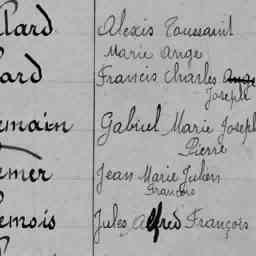 llard Alexis Toussaint
Marie Ange
lard Francis Charles Ange
Joseph
emain Gabriel Marie Joseph
Pierre
emer Jean Marie Julien
François
emois Jules Alfred François